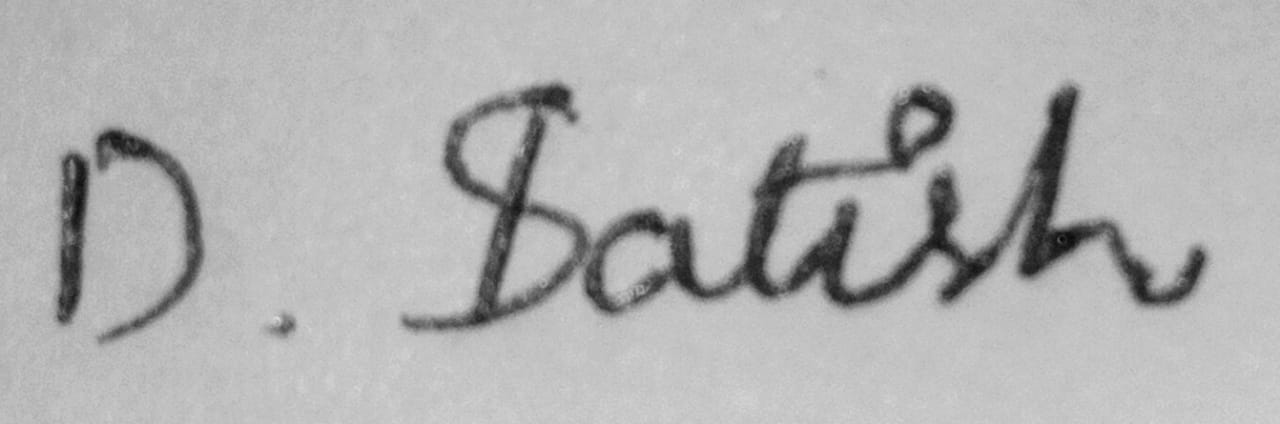 D. Satish